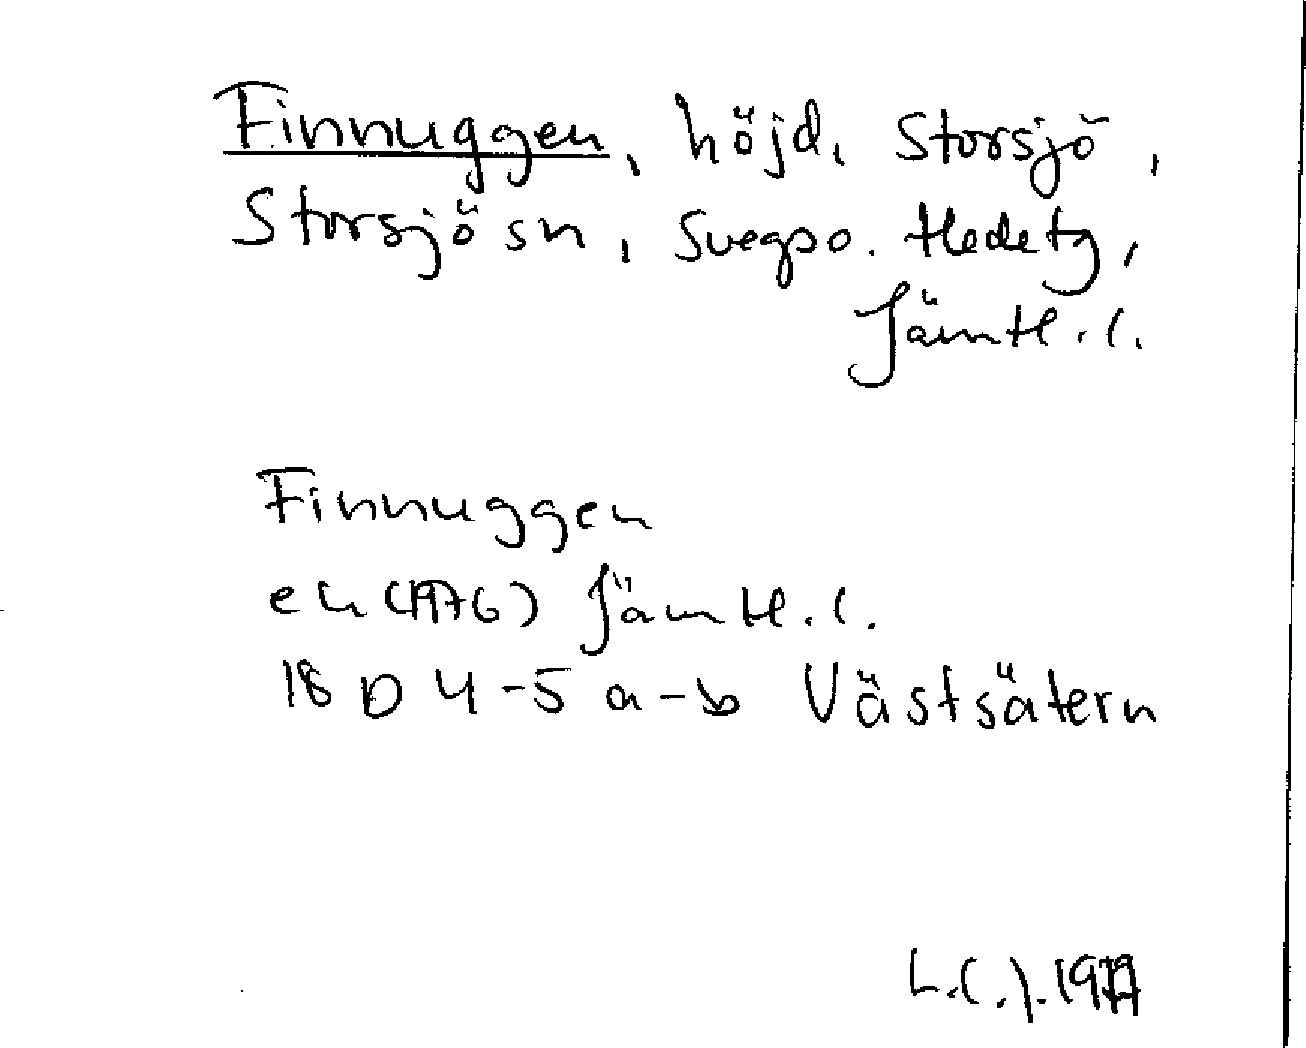 Finnuggen, höjd, Storsjö,
Storsjö sn, Svegs po. Hede tg,
Jämtl. l.
Finnuggen
ek (1976) Jämtl. l.
18 D 4-5 a-b Västsätern